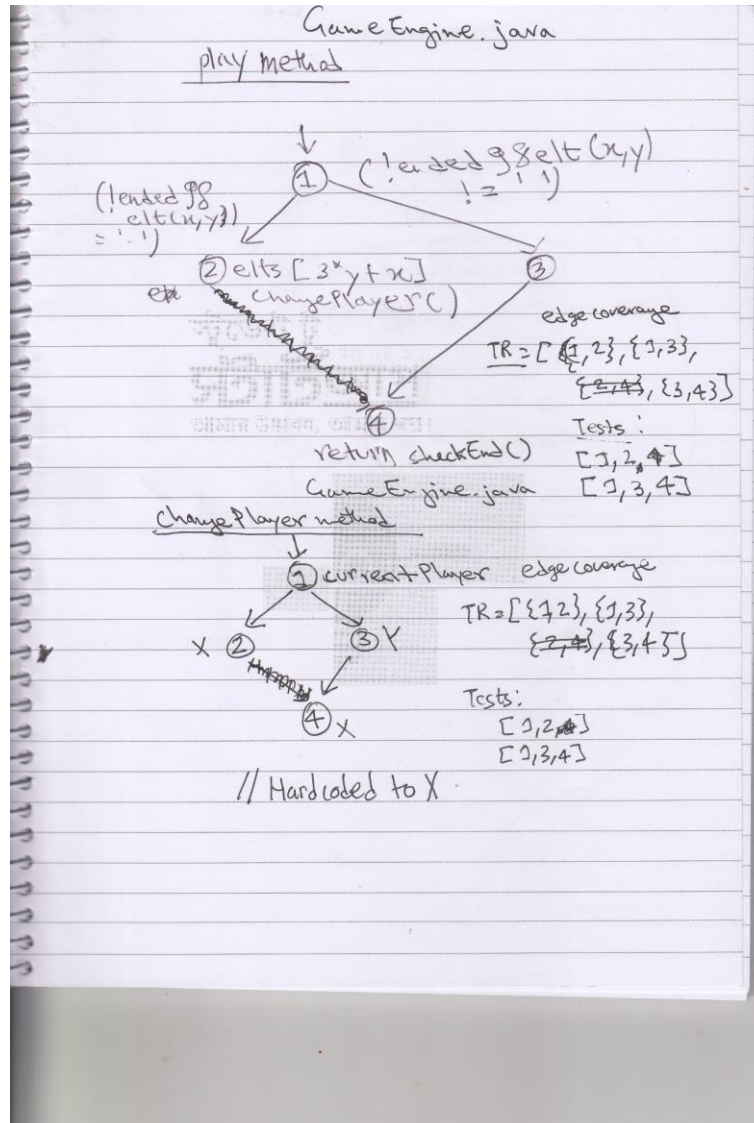 GameEngine.java
play method
1
(!ended && elt(x,y)
!= ' ')
(!ended &&
elt(x,y))
= ' ')
2 elts [3*y+x]
changePlayer()
3
edge coverage
TR = [{1,2}, {1,3},
{2,4}, {3,4}]
4
return checkEnd()
Tests:
[1,2,4]
[1,3,4]
GameEngine.java
changePlayer method
1 currentPlayer
edge coverage
TR=[{1,2}, {1,3},
{2,4}, {3,4}]
X 2
3 Y
4 X
Tests:
[1,2,4]
[1,3,4]
// Hardcoded to X